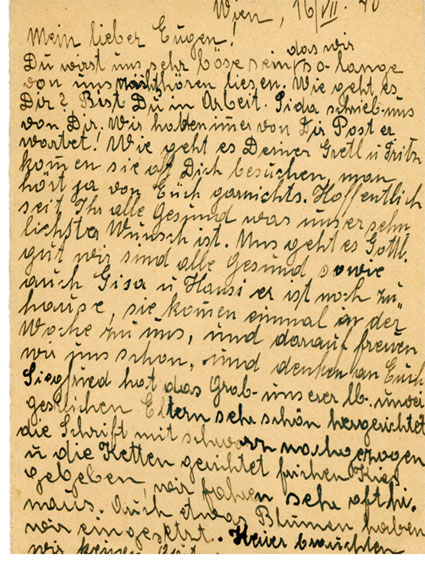 Wien, 16/VII. 40
Mein lieber Eugen!
das wir
Du wirst uns sehr böse sein, so lange
von uns nichts hören liesen. Wie geht es
Dir? Bist Du in Arbeit. Sida schrieb uns
von Dir. Wir haben imer von Dir Post er
wartet! Wie geht es Deiner Gretl u. Fritz
komen sie oft Dich besuchen, man
hört ja von Euch garnichts. Hoffentlich
seit Ihr alle Gesund was unser sehn
lichster Wunsch ist. Uns geht es Gottl.
gut wir sind alle Gesund sowie
auch Gisa u Hansi er ist noch zu-
hause, sie komen einmal in der
Woche zu uns, und darauf freuen
wir uns schon, und denken an Euch
Siegfried hat das Grab unserer lb. unver
gesslichen Eltern sehr schön hergerichtet
die Schrift mit schwarz nachgezogen
u die Ketten gerichtet frischen Kies
gegeben, wir fahren sehr oft hi-
naus. Auch etwas Blumen haben
wir eingesetzt. Heuer brauchten
wir keinen